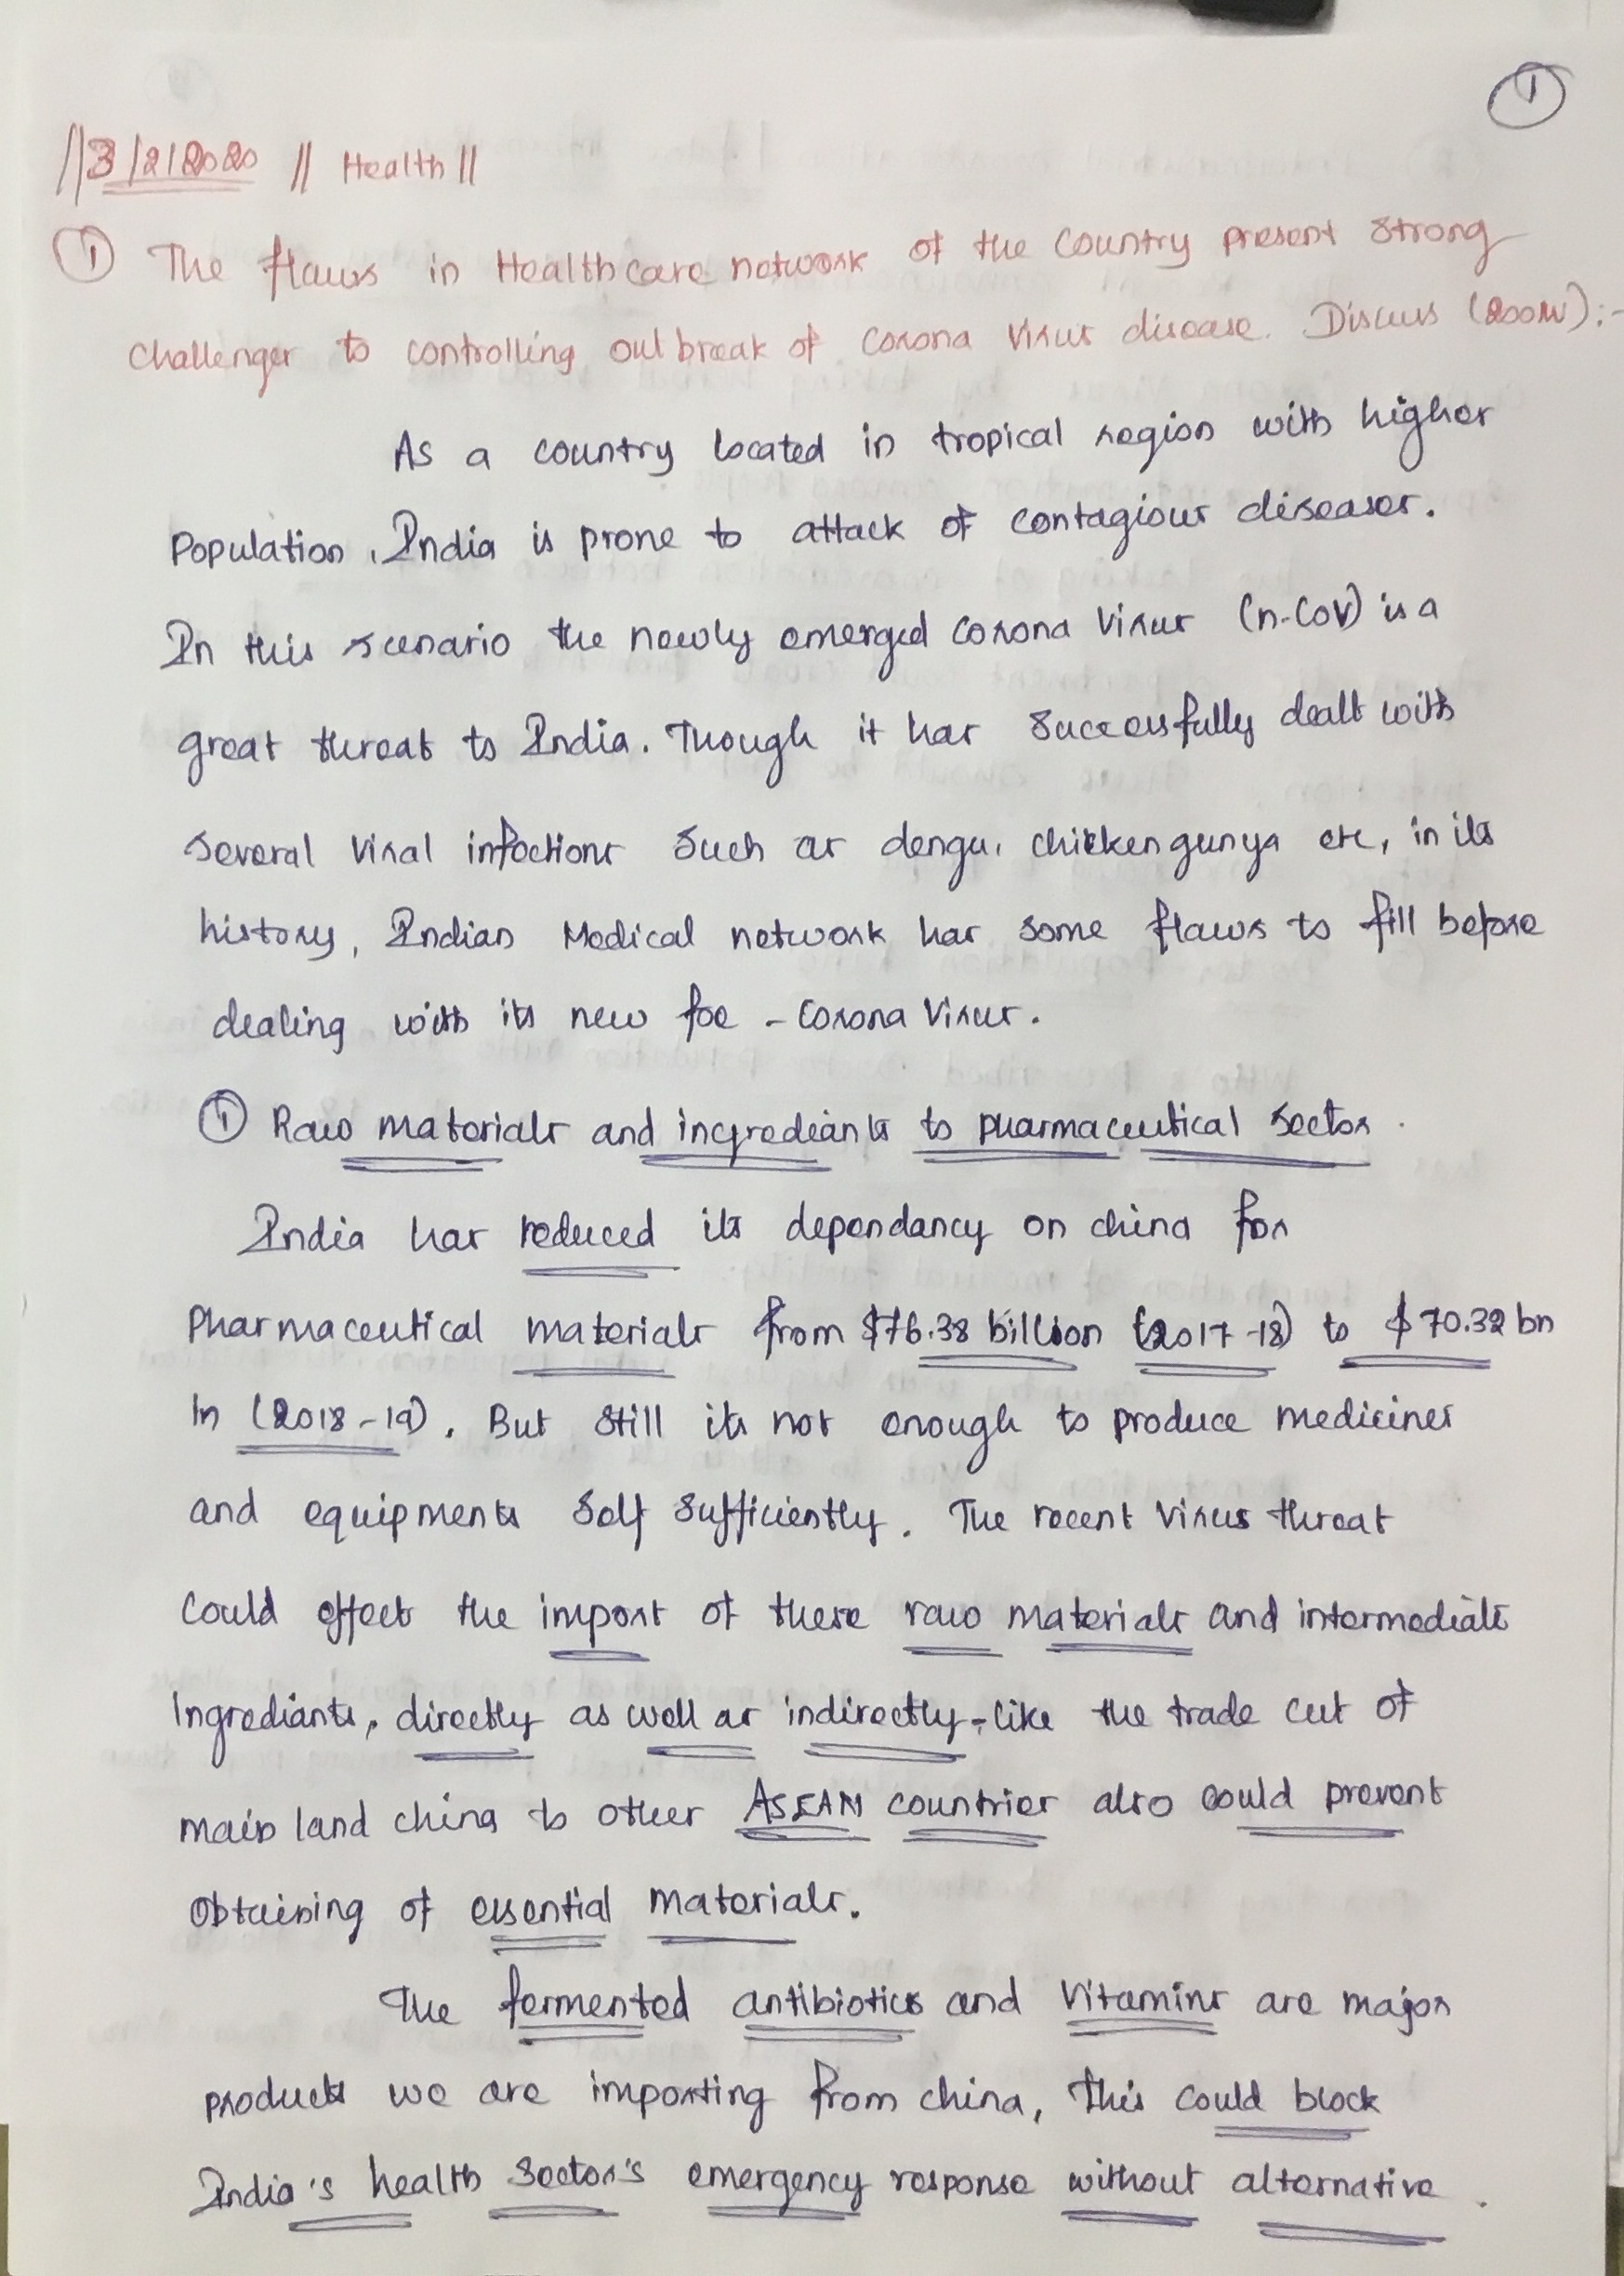 1
//3/2/2020 // Health //
① The flaws in Healthcare network of the country present strong
challenges to controlling outbreak of corona virus disease. Discuss (200W):-
As a country located in tropical region with higher
Population, India is prone to attack of contagious diseases.
In this scenario the newly emerged corona virus (n-CoV) is a
great threat to India. Though it has successfully dealt with
several viral infections such as dengu, chickengunya etc, in its
history, Indian Medical network has some flaws to fill before
dealing with its new foe - Corona Virus.
① Raw materials and ingrediants to pharmaceutical sector.
India has reduced its dependancy on china for
Pharmaceutical materials from $76.38 billion (2017-18) to $70.32 bn
In (2018-19). But still its not enough to produce medicines
and equipments self sufficiently. The recent virus threat
could effect the import of these raw materials and intermediate
Ingrediants, directly as well as indirectly-like the trade cut of
main land china to other ASEAN countries also could prevent
obtaining of essential materials.
The fermented antibiotics and Vitamins are major
products we are importing from china, this could block
India's health sector's emergency response without alternative.